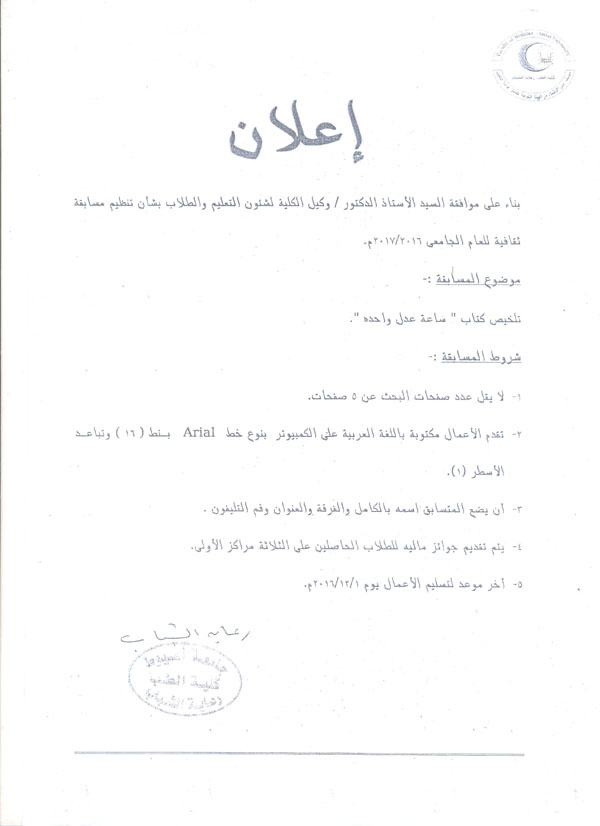 Faculty of Medicine - Assiut University
إعلان
بناء على موافقة السيد الأستاذ الدكتور / وكيل الكلية لشئون التعليم والطلاب بشأن تنظيم مسابقة
ثقافية للعام الجامعى ٢٠١٧/٢٠١٦م.
موضوع المسابقة :-
تلخيص كتاب " ساعة عدل واحده ".
شروط المسابقة :-
١- لا يقل عدد صفحات البحث عن ٥ صفحات.
٢- تقدم الأعمال مكتوبة باللغة العربية على الكمبيوتر بنوع خط Arial بنط ( ١٦ ) وتباعد
الأسطر (١).
٣- أن يضع المتسابق اسمه بالكامل والفرقة والعنوان وقم التليفون .
٤- يتم تقديم جوائز ماليه للطلاب الحاصلين على الثلاثة مراكز الأولى.
٥- أخر موعد لتسليم الأعمال يوم ٢٠١٦/١٢/١م.
رعاية الشباب
جامعة أسيوط
كلية الطب
رعاية الشباب